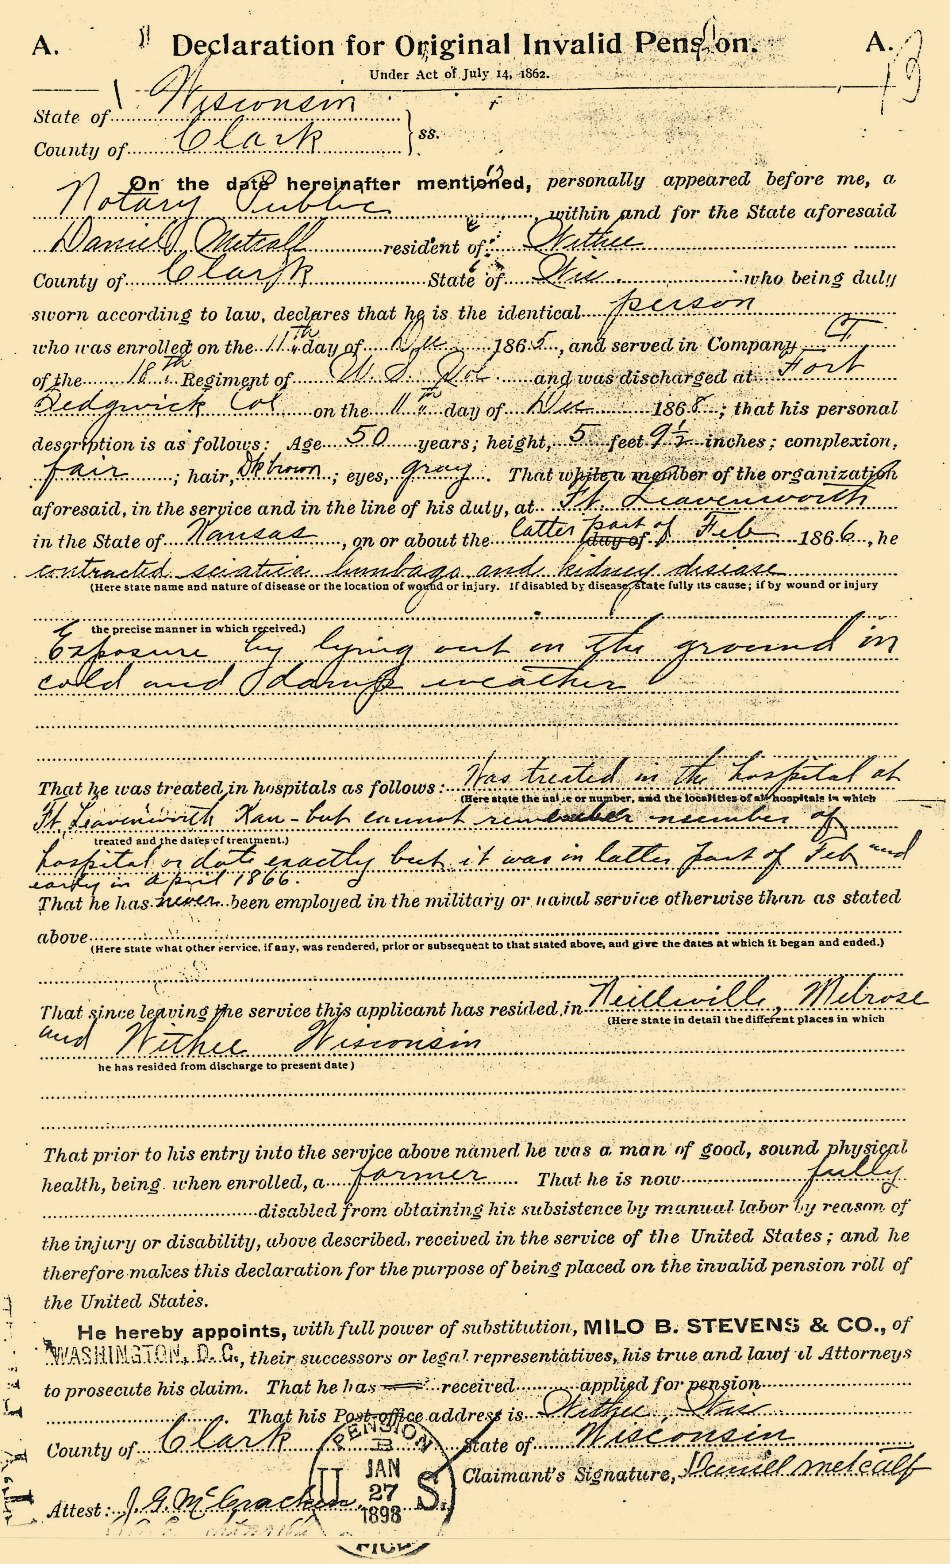 A. Declaration for Original Invalid Pension. A.
Under Act of July 14, 1862.
State of Wisconsin
County of Clark } ss.
On the date hereinafter mentioned, personally appeared before me, a
Notary Public, within and for the State aforesaid
Daniel Metcalf resident of Withee
County of Clark State of Wis. who being duly
sworn according to law, declares that he is the identical person
who was enrolled on the 11th day of Dec 1865, and served in Company F
of the 18th Regiment of U. S. Vol and was discharged at Fort
Sedgwick Col. on the 11th day of Dec 1868; that his personal
description is as follows: Age 50 years; height, 5 feet 9½ inches; complexion,
fair; hair, Dk brown; eyes, gray. That while a member of the organization
aforesaid, in the service and in the line of his duty, at Ft. Leavenworth
in the State of Kansas, on or about the latter part of day of Feb 1866, he
contracted sciatica lumbago and kidney disease
(Here state name and nature of disease or the location of wound or injury. If disabled by disease, state fully its cause; if by wound or injury
the precise manner in which received.)
Exposure by lying out on the ground in
cold and damp weather
That he was treated in hospitals as follows: Was treated in the hospital at
(Here state the name or number, and the localities of all hospitals in which
Ft. Leavenworth Kan - but cannot remember number of
treated and the dates of treatment.)
hospital or date exactly but it was in latter part of Feb and
early in April 1866.
That he has never been employed in the military or naval service otherwise than as stated
above
(Here state what other service, if any, was rendered, prior or subsequent to that stated above, and give the dates at which it began and ended.)
That since leaving the service this applicant has resided in Neillsville, Melrose
(Here state in detail the different places in which
and Withee Wisconsin
he has resided from discharge to present date)
That prior to his entry into the service above named he was a man of good, sound physical
health, being when enrolled, a farmer That he is now fully
disabled from obtaining his subsistence by manual labor by reason of
the injury or disability, above described, received in the service of the United States; and he
therefore makes this declaration for the purpose of being placed on the invalid pension roll of
the United States.
He hereby appoints, with full power of substitution, MILO B. STEVENS & CO., of
WASHINGTON, D. C., their successors or legal representatives, his true and lawful Attorneys
to prosecute his claim. That he has received applied for pension
That his Post-office address is Withee, Wis
County of Clark State of Wisconsin
Claimant's Signature, Daniel Metcalf
Attest: J. G. McCracken
PENSION
B
JAN
U 27 S.
1898